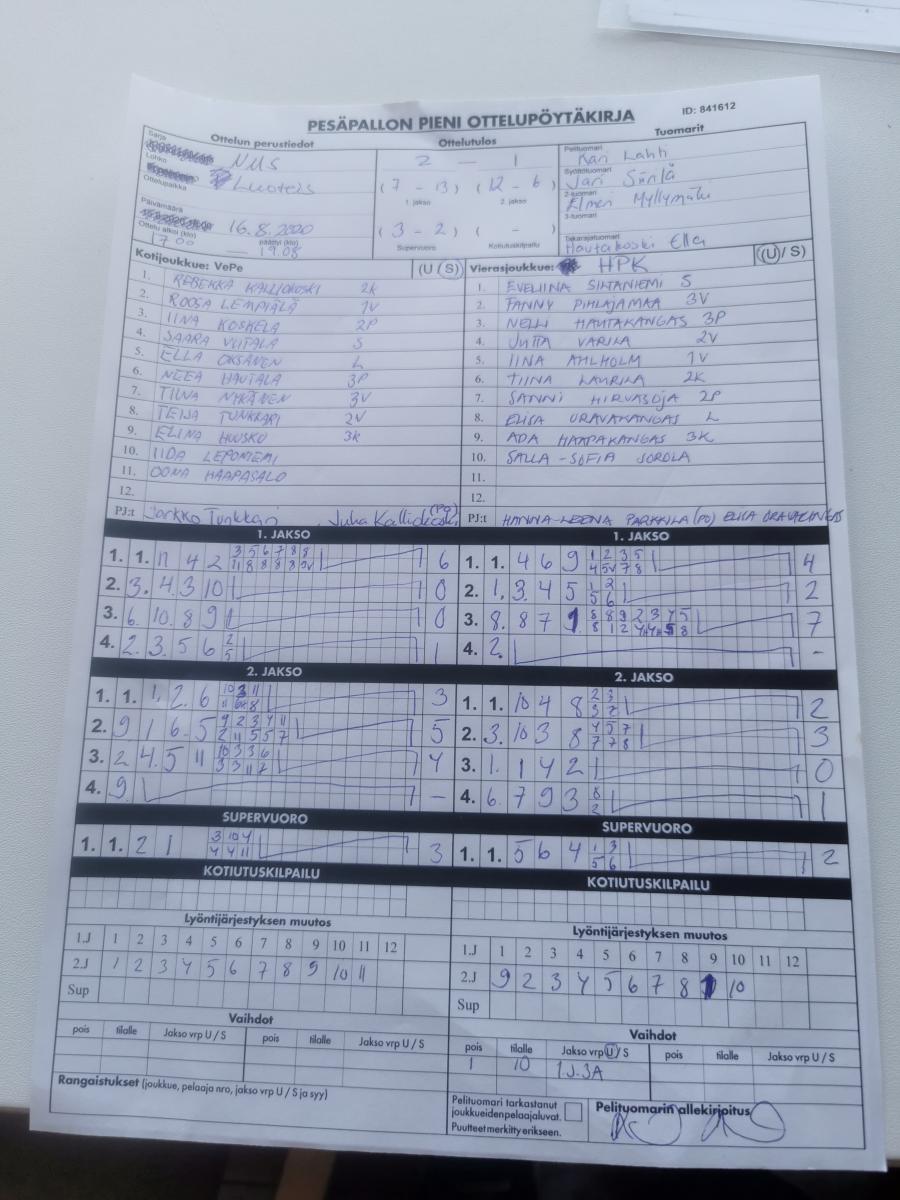 PESÄPALLON PIENI OTTELUPÖYTÄKIRJA
ID: 841612
Ottelun perustiedot Ottelutulos Tuomarit
Sarja NMS
Lohko Luoteis
Ottelupaikka
Päivämäärä 16.8.2020
Ottelu alkoi (klo) 17.00 päättyi (klo) 19.08
2 — 1
(7 - 13) (12 - 6)
1. jakso 2. jakso
(3 - 2) ( - )
Supervuoro Kotiutuskilpailu
Pelituomari Kari Lahti
Syöttötuomari Jari
2-tuomari Elmeri Myllymäki
3-tuomari
Takarajatuomari Hautakoski Ella
Kotijoukkue: VePe (U / S)
1. REBEKKA KALLIOKOSKI 2K
2. ROOSA LEMPIÄLÄ 1V
3. IINA KOSKELA 2P
4. SAARA VIITALA S
5. ELLA OKSANEN L
6. NEEA HAUTALA 3P
7. TIINA NYKÄNEN 3V
8. TEIJA TUNKKARI 2V
9. ELINA HUUSKO 3K
10. IIDA LEPONIEMI
11. OONA HAAPASALO
12.
PJ:t Jarkko Tunkkari, Juha Kalliokoski (PO)
Vierasjoukkue: HPK (U / S)
1. EVELIINA SILTANIEMI S
2. FANNY PIHLAJAMAA 3V
3. NELLI HAUTAKANGAS 3P
4. JUTTA VARILA 2V
5. IINA AHLHOLM 1V
6. TIINA LAURILA 2K
7. SANNI HIRVASOJA 2P
8. ELISA URAVAKANGAS L
9. ADA HAAPAKANGAS 3K
10. SALLA-SOFIA JOROLA
11.
12.
PJ:t HANNA-LEENA PARKKILA (PO)
1. JAKSO 1. JAKSO
1. 1. 11 4 2 6
2. 3. 4 3 10 0
3. 6. 10 8 9 0
4. 2. 3 5 6 2 5 1
1. 1. 4 6 9 1 2 3 5 4
2. 1. 3 4 5 1 2 5 6 2
3. 8. 8 7 1 7
4. 2. -
2. JAKSO 2. JAKSO
1. 1. 1 2 6 3
2. 9 1 6 5 9 2 3 4 11 2 11 5 5 7 5
3. 2 4 5 11 10 3 3 6 3 3 11 7 4
4. 9. -
1. 1. 10 4 8 2 3 3 7 2
2. 3. 10 3 8 4 5 7 7 7 8 3
3. 1. 1 4 2 0
4. 6. 7 9 3 8 2 1
SUPERVUORO SUPERVUORO
1. 1. 2 1 3 10 4 4 4 11 3
1. 1. 5 6 4 1 3 5 6 2
KOTIUTUSKILPAILU KOTIUTUSKILPAILU
Lyöntijärjestyksen muutos
1.J 1 2 3 4 5 6 7 8 9 10 11 12
2.J 1 2 3 4 5 6 7 8 9 10 11
Sup
Lyöntijärjestyksen muutos
1.J 1 2 3 4 5 6 7 8 9 10 11 12
2.J 9 2 3 4 5 6 7 8 1 10
Sup
Vaihdot
pois tilalle Jakso vrp U / S pois tilalle Jakso vrp U / S
Vaihdot
pois tilalle Jakso vrp U / S pois tilalle Jakso vrp U / S
1 10 1.J.3A
Rangaistukset (joukkue, pelaaja nro, jakso vrp U / S ja syy)
Pelituomari tarkastanut
joukkueiden pelaajaluvat.
Puutteet merkitty erikseen.
Pelituomarin allekirjoitus